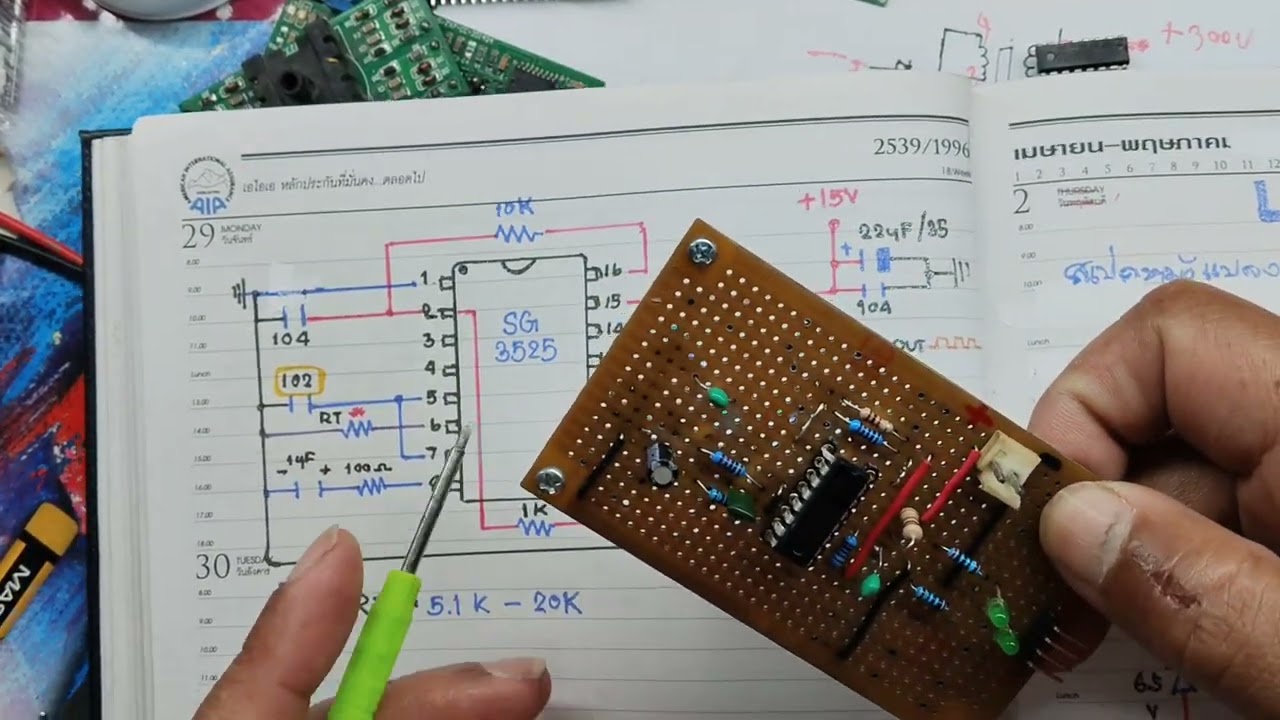 +300V
2539/1996
18.Week
เอไอเอ หลักประกันที่มั่นคง...ตลอดไป
AIA
เมษายน-พฤษภาค
1 2 3 4 5 6 7 8 9 10 11 12
29 MONDAY
วันจันทร์
2 THURSDAY
วันพฤหัสบดี
10K
+15V
22µF/35
104
SG
3525
1
2
3
4
5
6
7
16
15
14
104
102
RT *
- 1µF + 100Ω
1K
OUT
30 TUESDAY
วันอังคาร
5.1K - 20K
8.00
9.00
10.00
11.00
Lunch
13.00
14.00
15.00
16.00
17.00
18.00
8.00
9.00
10.00
11.00
Lunch
8.00
10.00
Lunch
Lunch
6.5
V
+
MAS